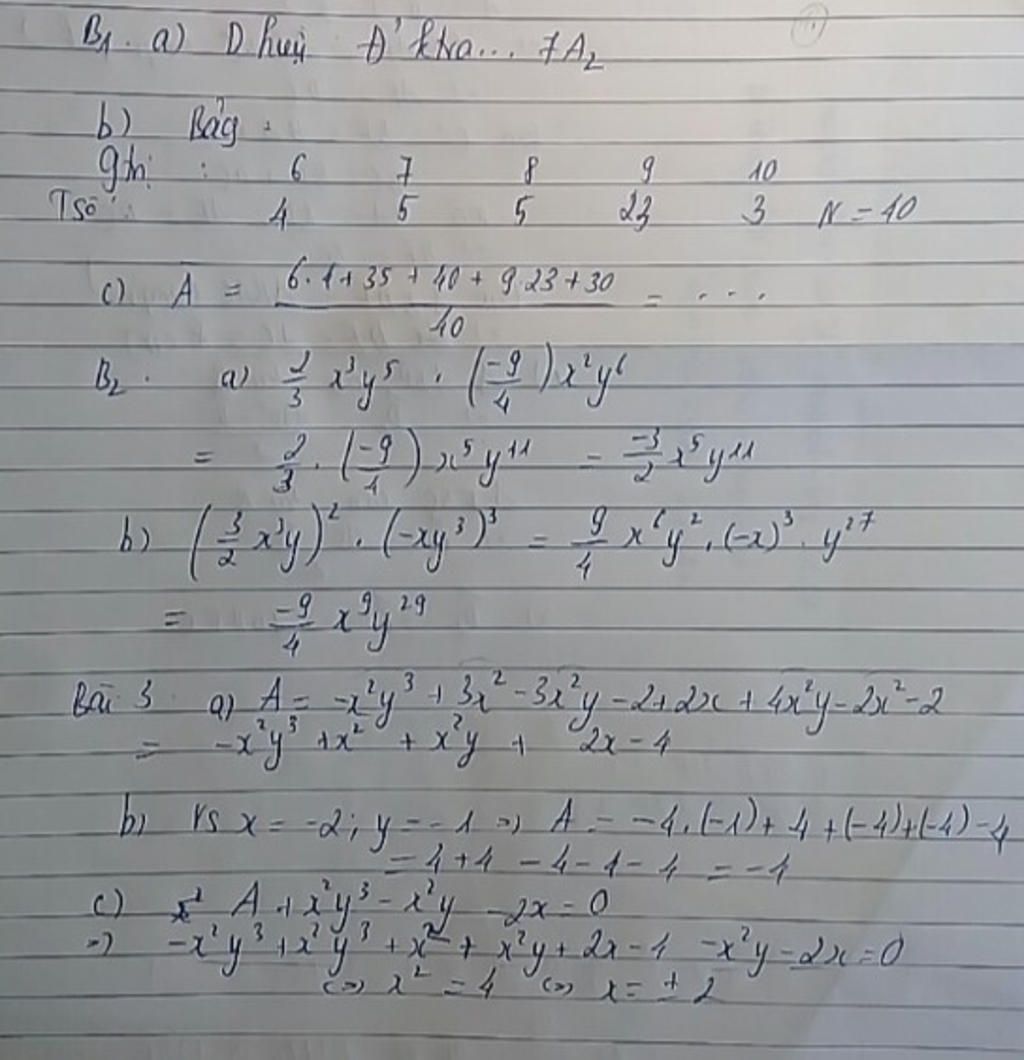 B1. a) D hiệu Đ' ktra... 7A2
b) Bảg :
gtrị : 6 7 8 9 10
T số : 4 5 5 23 3 N = 40
c) A = (6.4 + 35 + 40 + 9.23 + 30)/40 = ...
B2. a) 2/3 x³y⁵ . (-9/4) x²y⁶
= 2/3 . (-9/4) x⁵y¹¹ = -3/2 x⁵y¹¹
b) (3/2 x³y)² . (-xy³)³ = 9/4 x⁶y² . (-x)³ . y²⁷
= -9/4 x⁹y²⁹
Bài 3 a) A = -x²y³ + 3x² - 3x²y - 2 + 2x + 4x²y - 2x² - 2
= -x²y³ + x² + x²y + 2x - 4
b) Vs x = -2; y = -1 => A = -4.(-1) + 4 + (-4) + (-4) - 4
= 4 + 4 - 4 - 4 - 4 = -4
c) A + x²y³ - x²y - 2x = 0
=> -x²y³ + x²y³ + x² + x²y + 2x - 4 - x²y - 2x = 0
<=> x² = 4 <=> x = ± 2